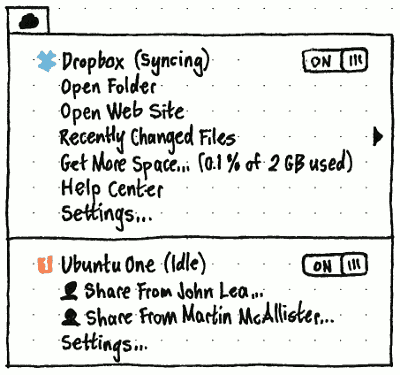 Dropbox (Syncing) ON
Open Folder
Open Web Site
Recently Changed Files
Get More Space... (0.1% of 2 GB used)
Help Center
Settings...
1 Ubuntu One (Idle) ON
Share From John Lea...
Share From Martin McAllister...
Settings...